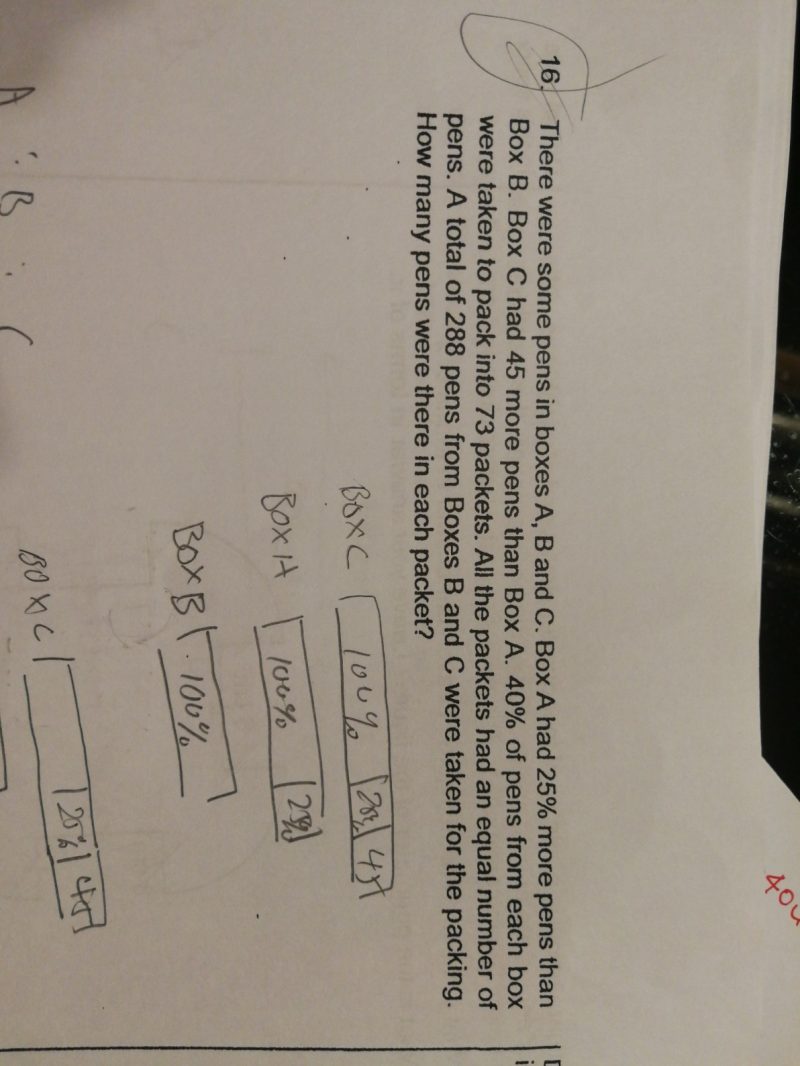 16. There were some pens in boxes A, B and C. Box A had 25% more pens than
Box B. Box C had 45 more pens than Box A. 40% of pens from each box
were taken to pack into 73 packets. All the packets had an equal number of
pens. A total of 288 pens from Boxes B and C were taken for the packing.
How many pens were there in each packet?
BOX C 100% 45
BOX A 100%
BOX B 100%
BOX C 25% 45
A : B : C